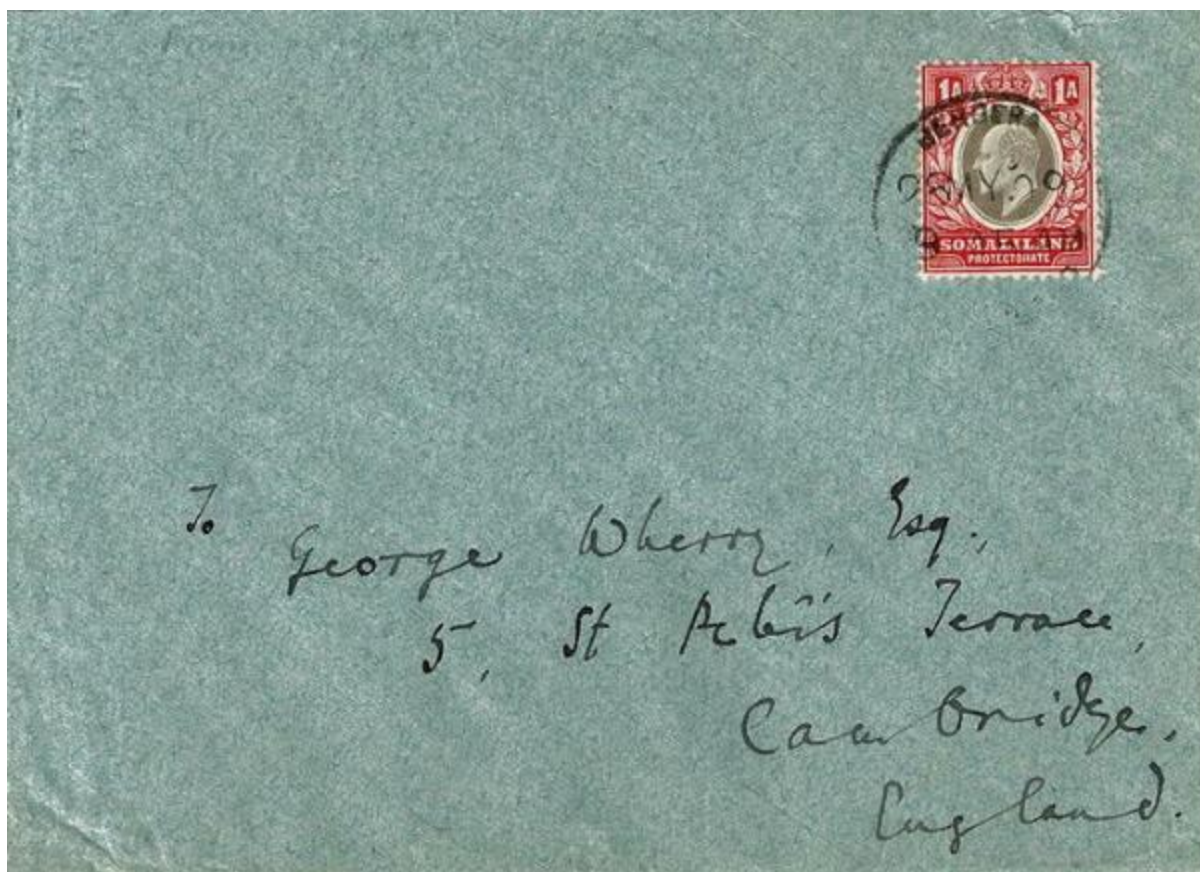 1A 1A
BERBERA
MY. 09
SOMALILAND
PROTECTORATE
To
George Wherry, Esq.,
5, St Peter's Terrace,
Cambridge,
England.